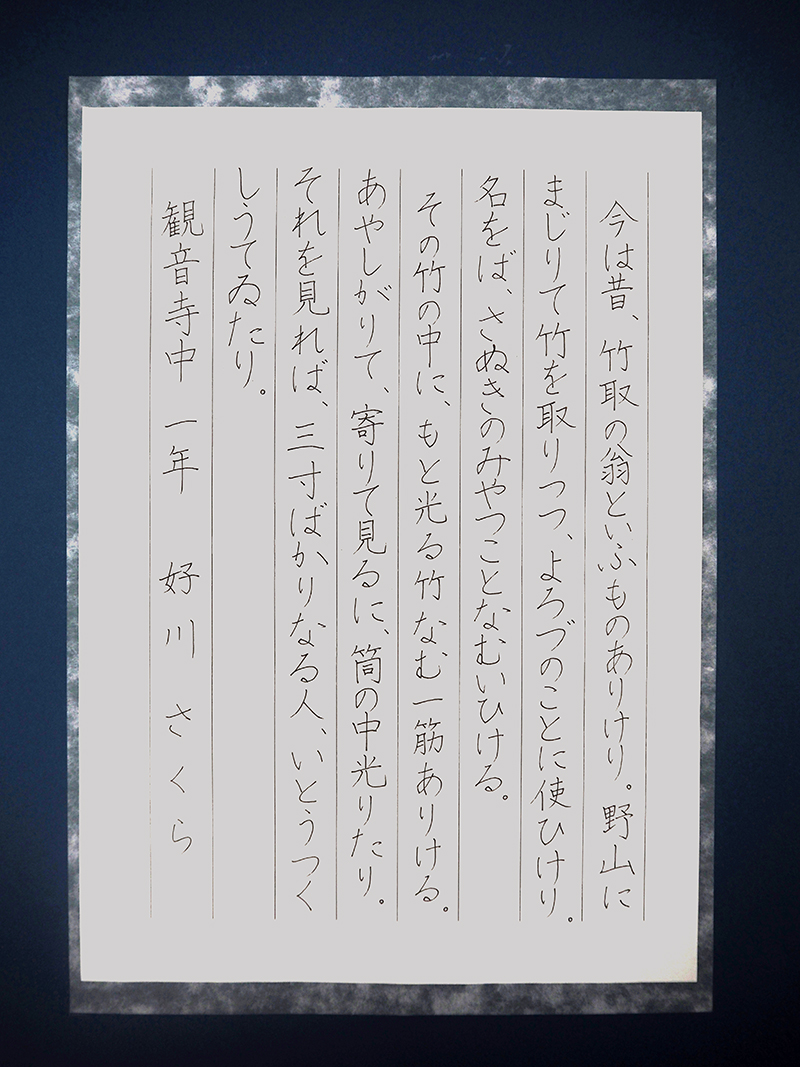 今は昔、竹取の翁といふものありけり。野山に
まじりて竹を取りつつ、よろづのことに使ひけり。
名をば、さぬきのみやつことなむいひける。
その竹の中に、もと光る竹なむ一筋ありける。
あやしがりて、寄りて見るに、筒の中光りたり。
それを見れば、三寸ばかりなる人、いとうつく
しうてゐたり。
観音寺中 一年 好川 さくら